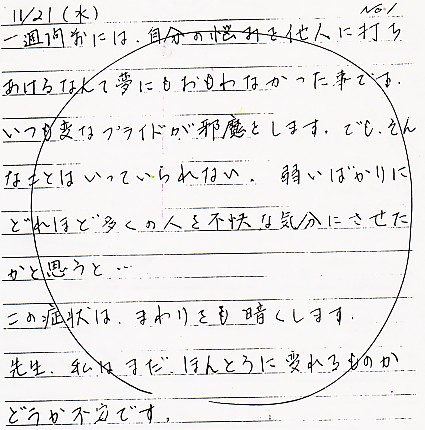 11/21(水) No.1
一週間前には、自分の悩みを他人に打ち
あけるなんて夢にもおもわなかった事です。
いつも変なプライドが邪魔をします。でも、そん
なことはいっていられない。弱いばかりに
どれほど多くの人を不快な気分にさせた
かと思うと…
この症状は、まわりをも暗くします。
先生、私はまだ、ほんとうに変れるものか
どうか不安です。